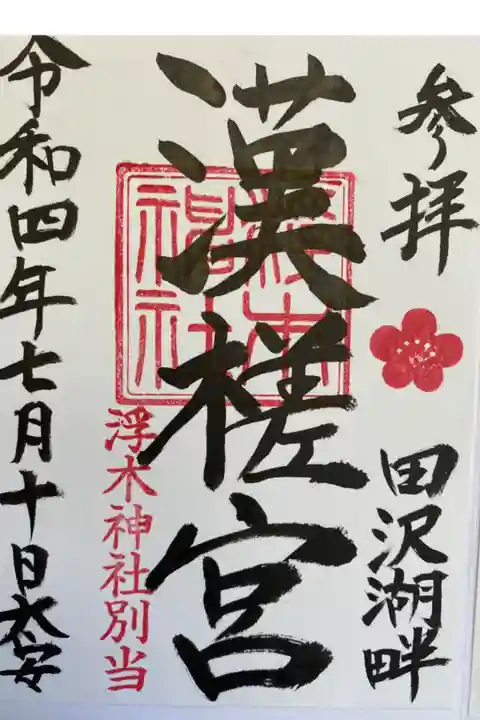 参拝
田沢湖畔
漢槎宮
浮木神社
浮木神社別当
令和四年七月十日大安